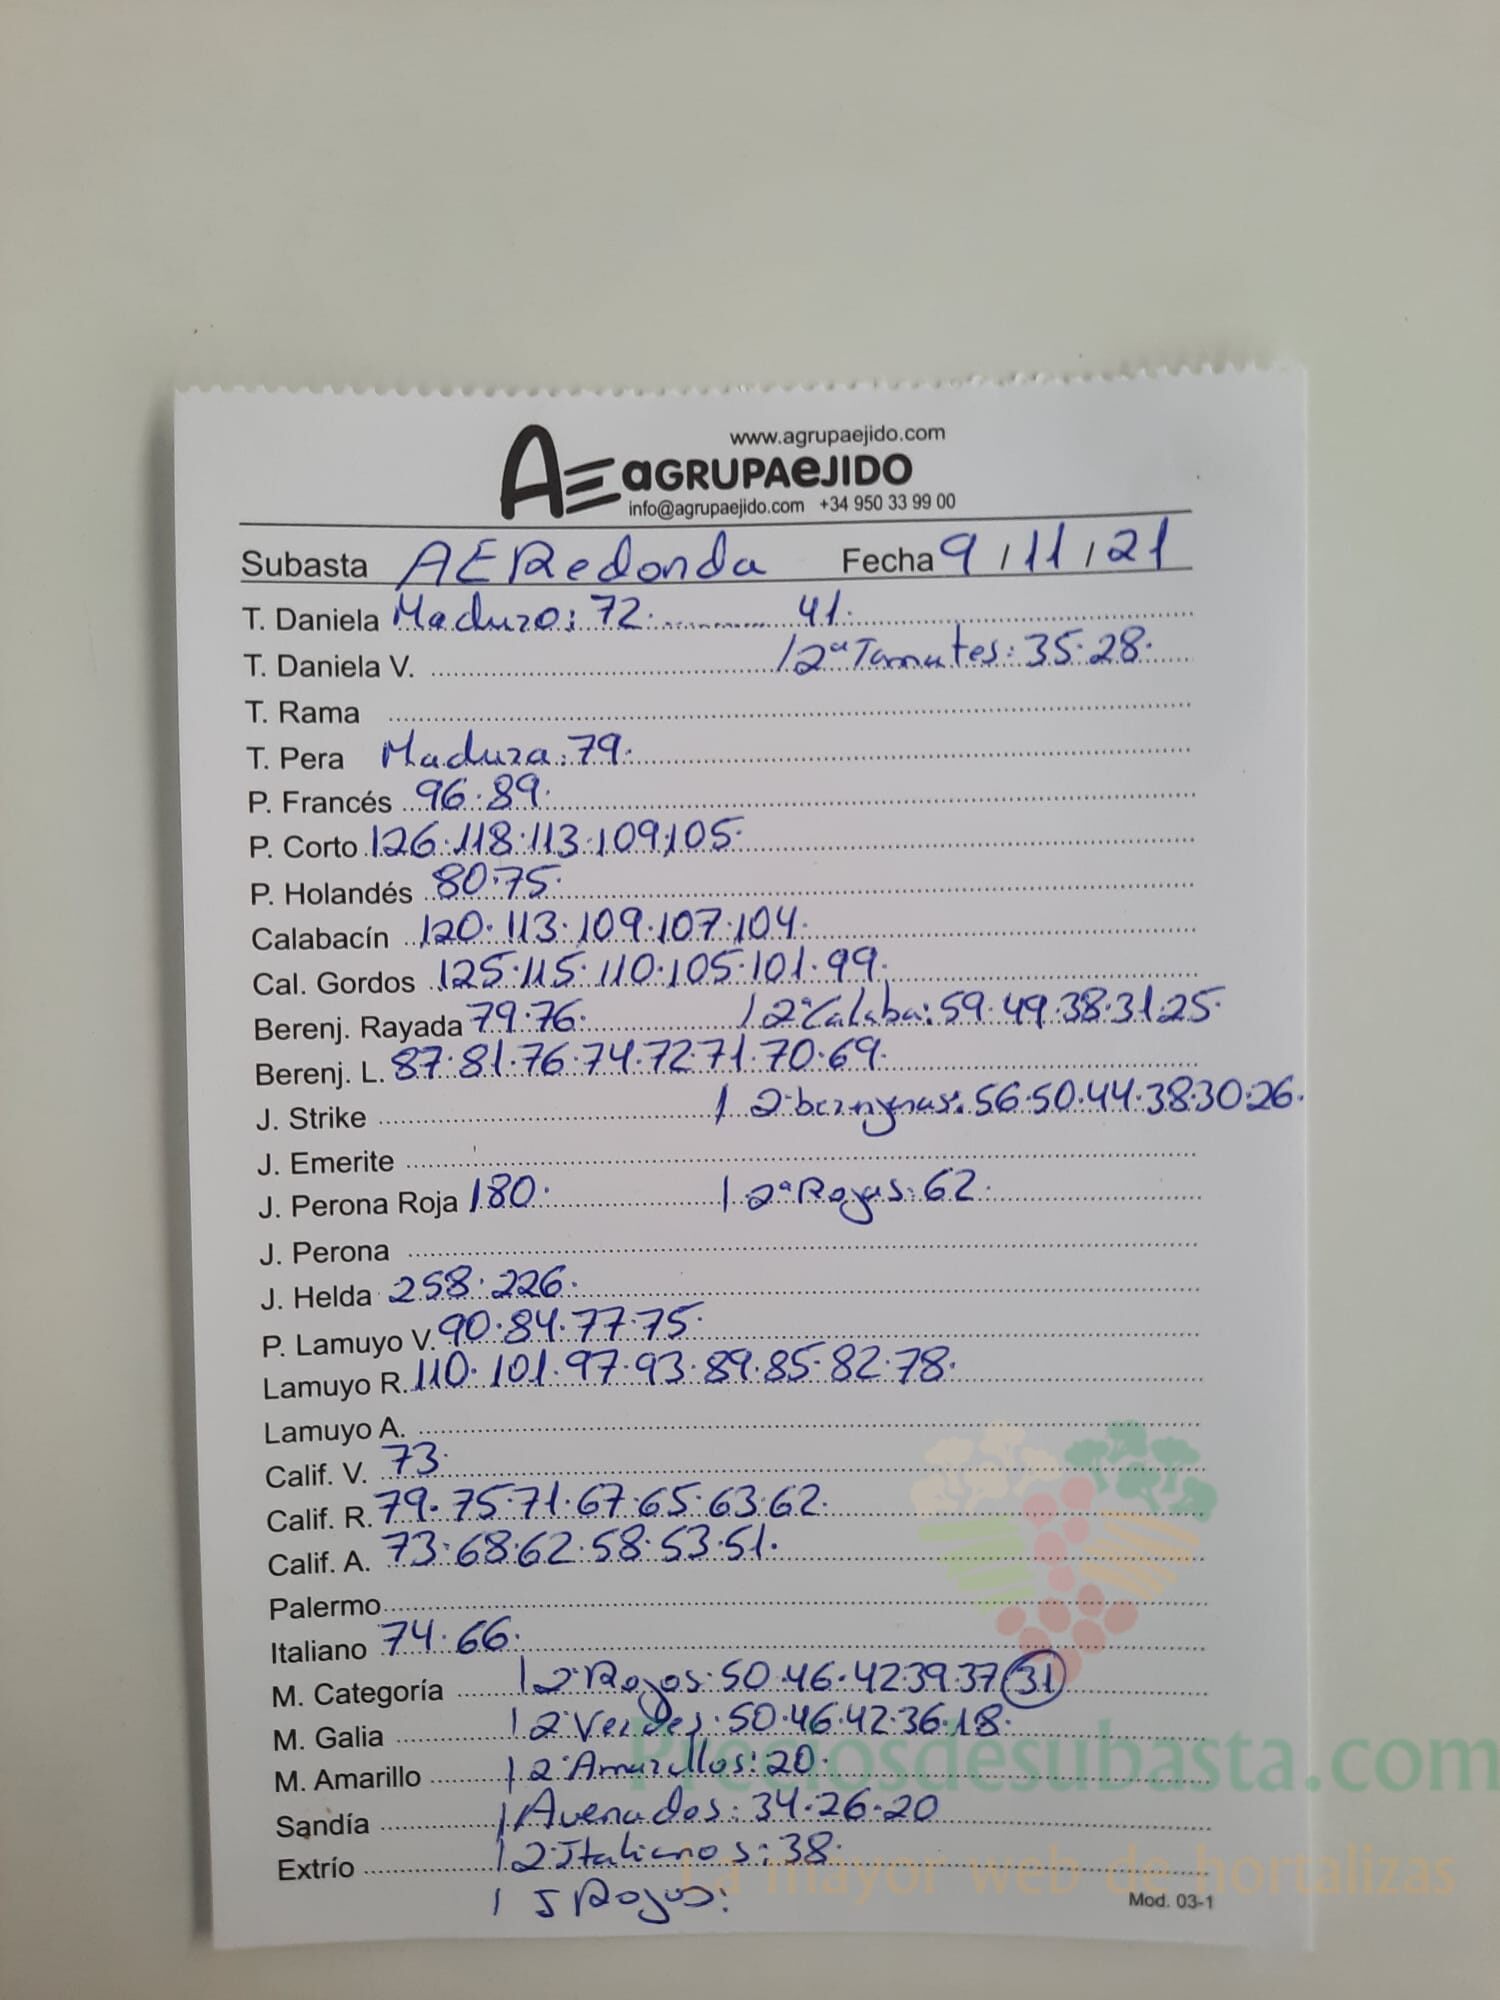 www.agrupaejido.com
AE aGRUPAeJIDO
info@agrupaejido.com +34 950 33 99 00
Subasta AERedonda Fecha 9/11/21
T. Daniela Maduro: 72. .......... 41.
T. Daniela V. / 2ª Tomates: 35.28.
T. Rama
T. Pera Madura: 79.
P. Francés 96.89.
P. Corto 126.118.113.109.105.
P. Holandés 80.75.
Calabacín 120.113.109.107.104.
Cal. Gordos 125.115.110.105.101.99.
Berenj. Rayada 79.76. / 2ª Calaba: 59.49.38.31.25.
Berenj. L. 87.81.76.74.72.71.70.69.
J. Strike / 2ª berenjenas: 56.50.44.38.30.26.
J. Emerite
J. Perona Roja 180. / 2ª Rojas: 62.
J. Perona
J. Helda 258.226.
P. Lamuyo V. 90.84.77.75.
Lamuyo R. 110.101.97.93.89.85.82.78.
Lamuyo A.
Calif. V. 73.
Calif. R. 79.75.71.67.65.63.62.
Calif. A. 73.68.62.58.53.51.
Palermo
Italiano 74.66.
M. Categoría / 2ª Rojos: 50.46.42.39.37 31
M. Galia / 2ª Verdes: 50.46.42.36.18.
M. Amarillo / 2ª Amarillos: 20.
Sandía / Avenados: 34.26.20
Extrío / 2ª Italianos: 38.
/ J Rojos:
Mod. 03-1
Preciosdesubasta.com
La mayor web de hortalizas